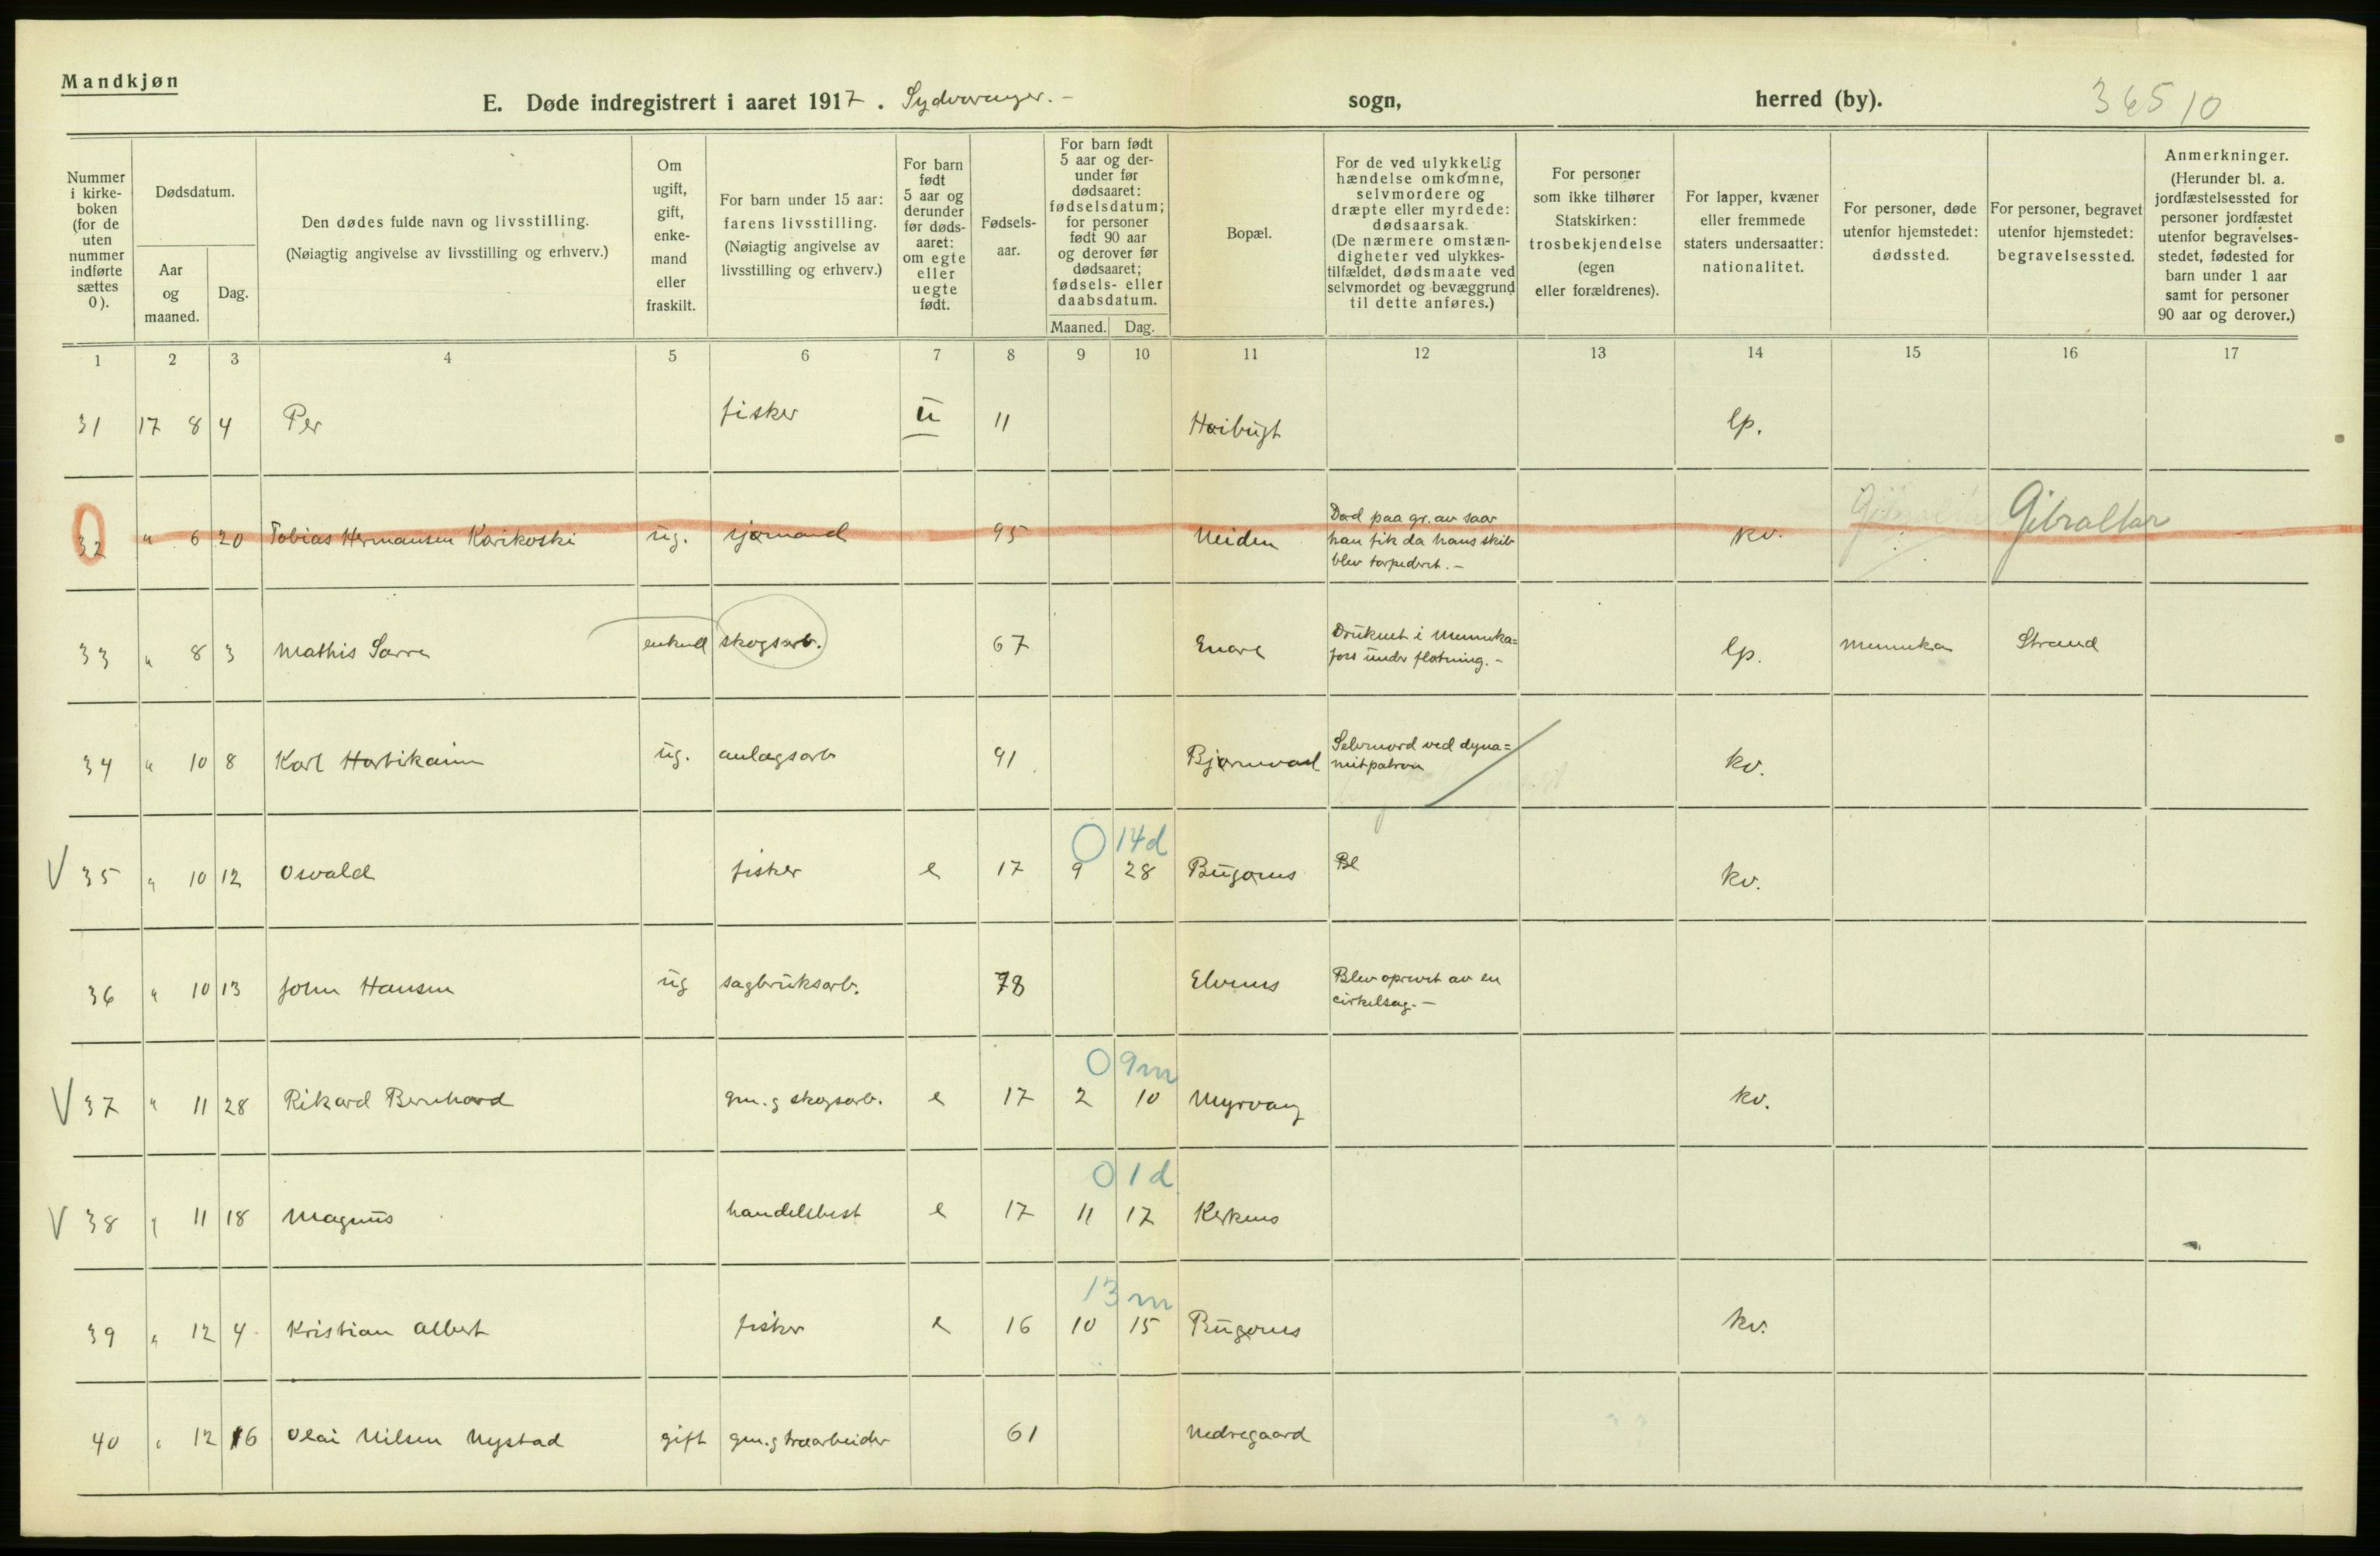 Mandkjøn
E. Døde indregistrert i aaret 1917. Sydvaranger. – sogn, herred (by). 365 10
Nummer i kirke- boken (for de uten nummer indførte sættes 0).
Dødsdatum.
Aar og maaned.
Dag.
Den dødes fulde navn og livsstilling.
(Nøiagtig angivelse av livsstilling og erhverv.)
Om ugift, gift, enke- mand eller fraskilt.
For barn under 15 aar: farens livsstilling. (Nøiagtig angivelse av livsstilling og erhverv.)
For barn født 5 aar og derunder før døds- aaret: om egte eller uegte født.
Fødsels- aar.
For barn født 5 aar og der- under før dødsaaret: fødselsdatum; for personer født 90 aar og derover før dødsaaret; fødsels- eller daabsdatum.
Maaned. Dag.
Bopæl.
For de ved ulykkelig hændelse omkomne, selvmordere og dræpte eller myrdede: dødsaarsak. (De nærmere omstæn- digheter ved ulykkes- tilfældet, dødsmaate ved selvmordet og bevæggrund til dette anføres.)
For personer som ikke tilhører Statskirken: trosbekjendelse (egen eller forældrenes).
For lapper, kvæner eller fremmede staters undersaatter: nationalitet.
For personer, døde utenfor hjemstedet: dødssted.
For personer, begravet utenfor hjemstedet: begravelsessted.
Anmerkninger. (Herunder bl. a. jordfæstelsessted for personer jordfæstet utenfor begravelses- stedet, fødested for barn under 1 aar samt for personer 90 aar og derover.)
1 2 3 4 5 6 7 8 9 10 11 12 13 14 15 16 17
31 17 8 4 Per fisker u 11 Høibugt lp.
32 " 6 20 Tobias Hermansen Karikoski ug. sjømand 95 Neiden Død paa gr. av saar
han fik da hans skib
blev torpedert. – kv. Gibraltar Gibraltar
33 " 8 3 Mathis Sarre enkem skogsarb. 67 Enare Druknet i Mennika=
fors under fløtning. – lp. Mennika Strand
34 " 10 8 Karl Hartikain ug. anlægsarb 91 Bjørnevand Selvmord ved dyna=
mitpatron kv.
0 14d
V 35 " 10 12 Osvald fisker e 17 9 28 Bugønes Bl kv.
36 " 10 13 John Hansen ug sagbruksarb. 78 Elvenes Blev oprevet av en
cirkelsag. –
0 9m
V 37 " 11 28 Rikard Bernhard gm. g skogsarb. e 17 2 10 Myrvang kv.
0 1d
V 38 " 11 18 Magnus handelsbest e 17 11 17 Kirkenes
13 m
39 " 12 4 Kristian Albert fisker e 16 10 15 Bugønes kv.
40 " 12 16 Olai Nilsen Nystad gift gm. g træarbeider 61 Nedregaard